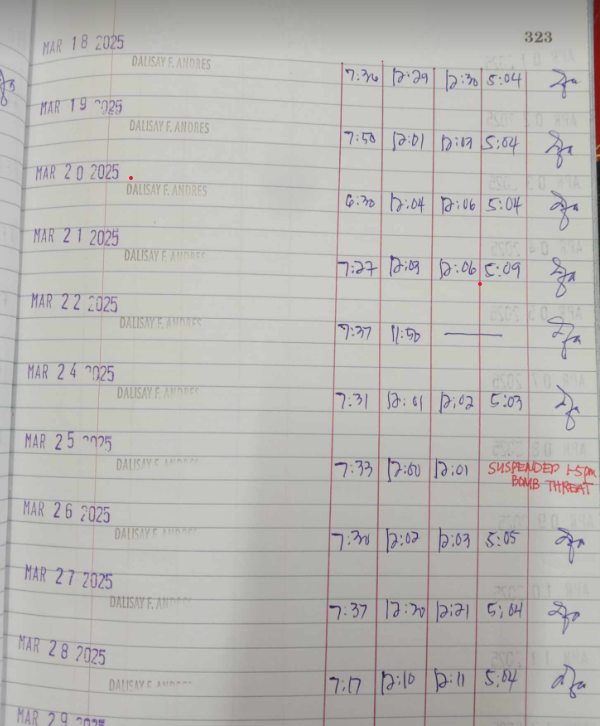 323
MAR 18 2025
DALISAY F. ANDRES
7:36 12:29 12:30 5:04
MAR 19 2025
DALISAY F. ANDRES
7:50 12:01 12:03 5:04
MAR 20 2025
DALISAY F. ANDRES
6:30 12:04 12:06 5:04
MAR 21 2025
DALISAY F. ANDRES
7:27 12:03 12:06 5:09
MAR 22 2025
DALISAY F. ANDRES
7:37 11:50
MAR 24 2025
DALISAY F. ANDRES
7:31 12:01 12:02 5:03
MAR 25 2025
DALISAY F. ANDRES
7:33 12:00 12:01 SUSPENDED 1-5pm
BOMB THREAT
MAR 26 2025
DALISAY F. ANDRES
7:30 12:02 12:03 5:05
MAR 27 2025
DALISAY F. ANDRES
7:37 12:20 12:21 5:04
MAR 28 2025
DALISAY F. ANDRES
7:17 12:10 12:11 5:04
MAR 29 2025